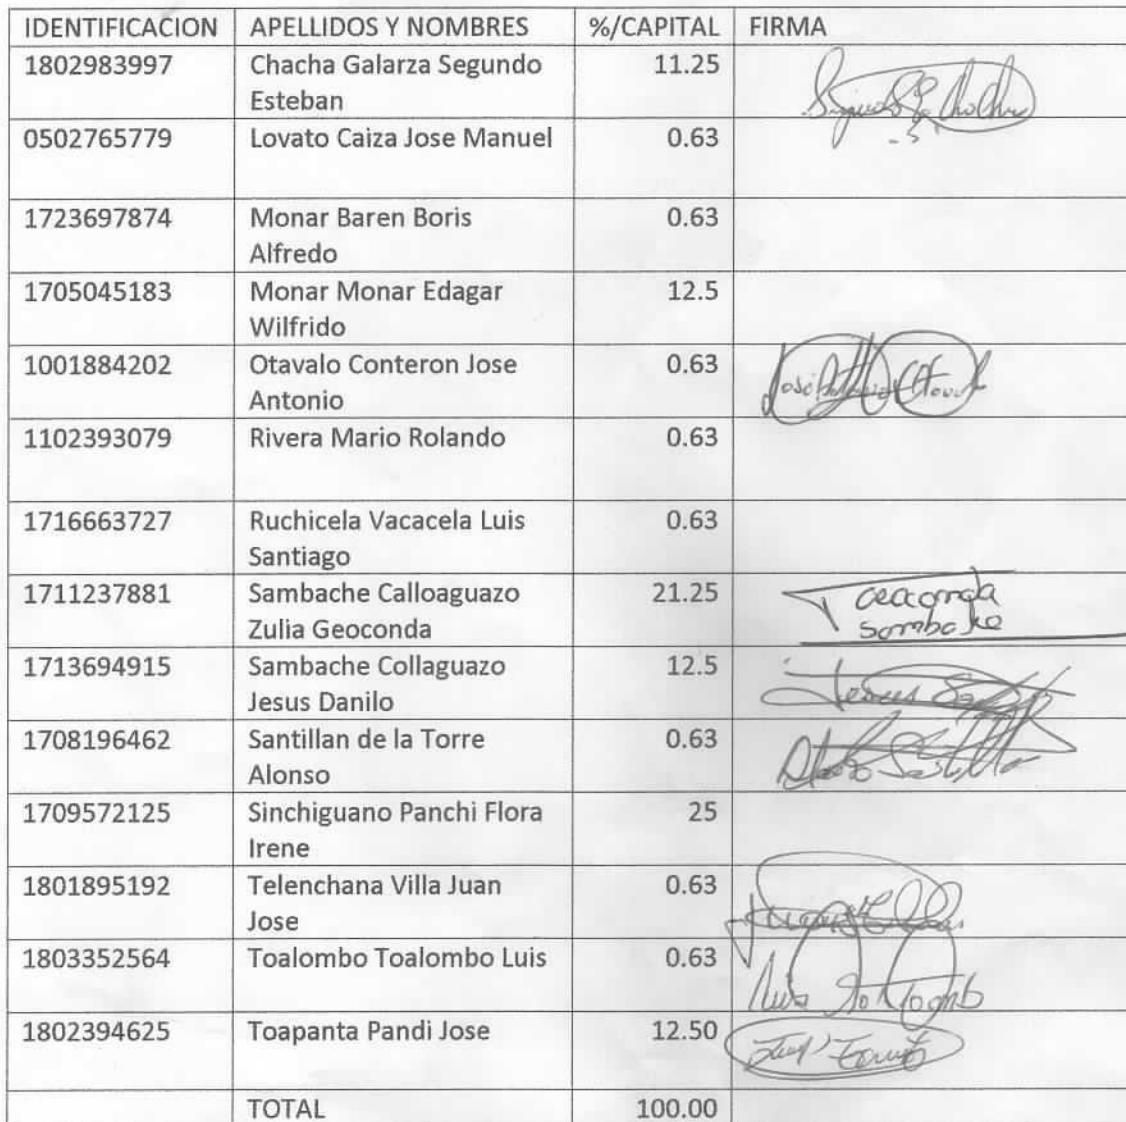 IDENTIFICACION APELLIDOS Y NOMBRES %/CAPITAL FIRMA
1802983997 Chacha Galarza Segundo 11.25
Esteban
0502765779 Lovato Caiza Jose Manuel 0.63
1723697874 Monar Baren Boris 0.63
Alfredo
1705045183 Monar Monar Edagar 12.5
Wilfrido
1001884202 Otavalo Conteron Jose 0.63
Antonio
1102393079 Rivera Mario Rolando 0.63
1716663727 Ruchicela Vacacela Luis 0.63
Santiago
1711237881 Sambache Calloaguazo 21.25
Zulia Geoconda
1713694915 Sambache Collaguazo 12.5
Jesus Danilo
1708196462 Santillan de la Torre 0.63
Alonso
1709572125 Sinchiguano Panchi Flora 25
Irene
1801895192 Telenchana Villa Juan 0.63
Jose
1803352564 Toalombo Toalombo Luis 0.63
1802394625 Toapanta Pandi Jose 12.50
TOTAL 100.00